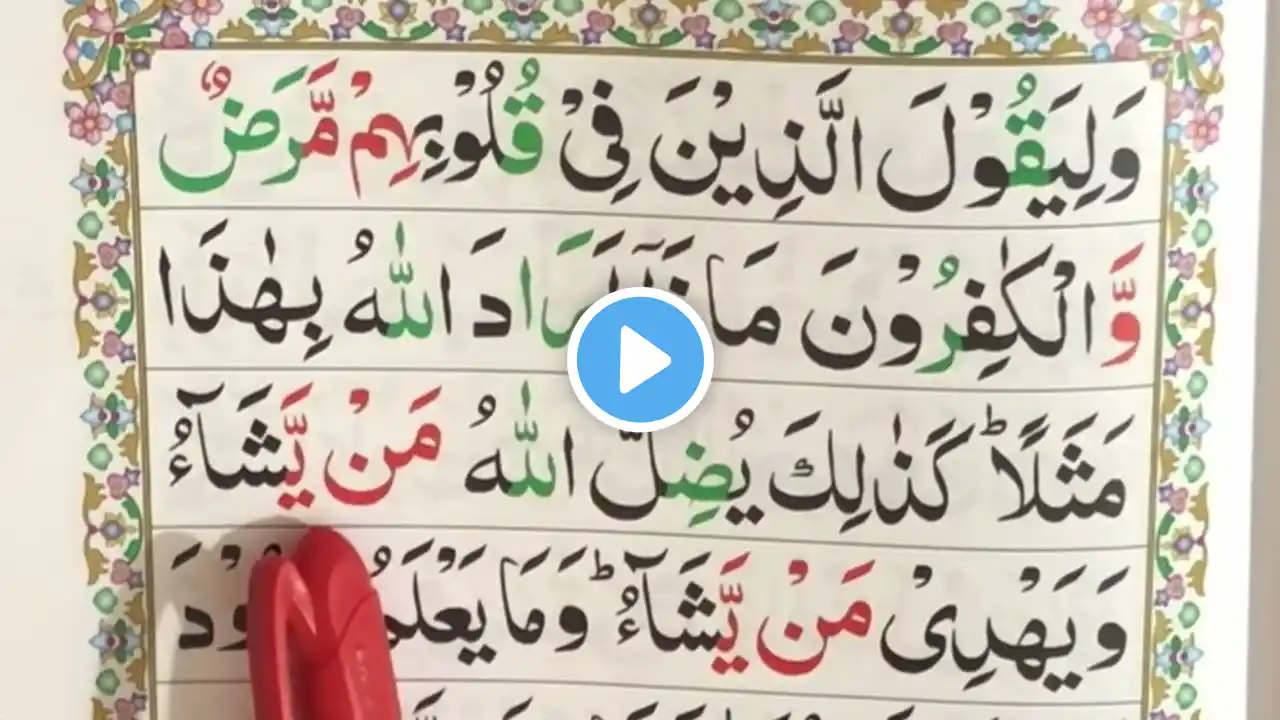 وَلِيَقُوْلَ الَّذِيْنَ فِيْ قُلُوْبِهِمْ مَّرَضٌ
وَّالْكٰفِرُوْنَ مَا اَرَادَ اللّٰهُ بِهٰذَا
مَثَلًاؕ كَذٰلِكَ يُضِلُّ اللّٰهُ مَنْ يَّشَآءُ
وَيَهْدِيْ مَنْ يَّشَآءُؕ وَمَا يَعْلَمُ